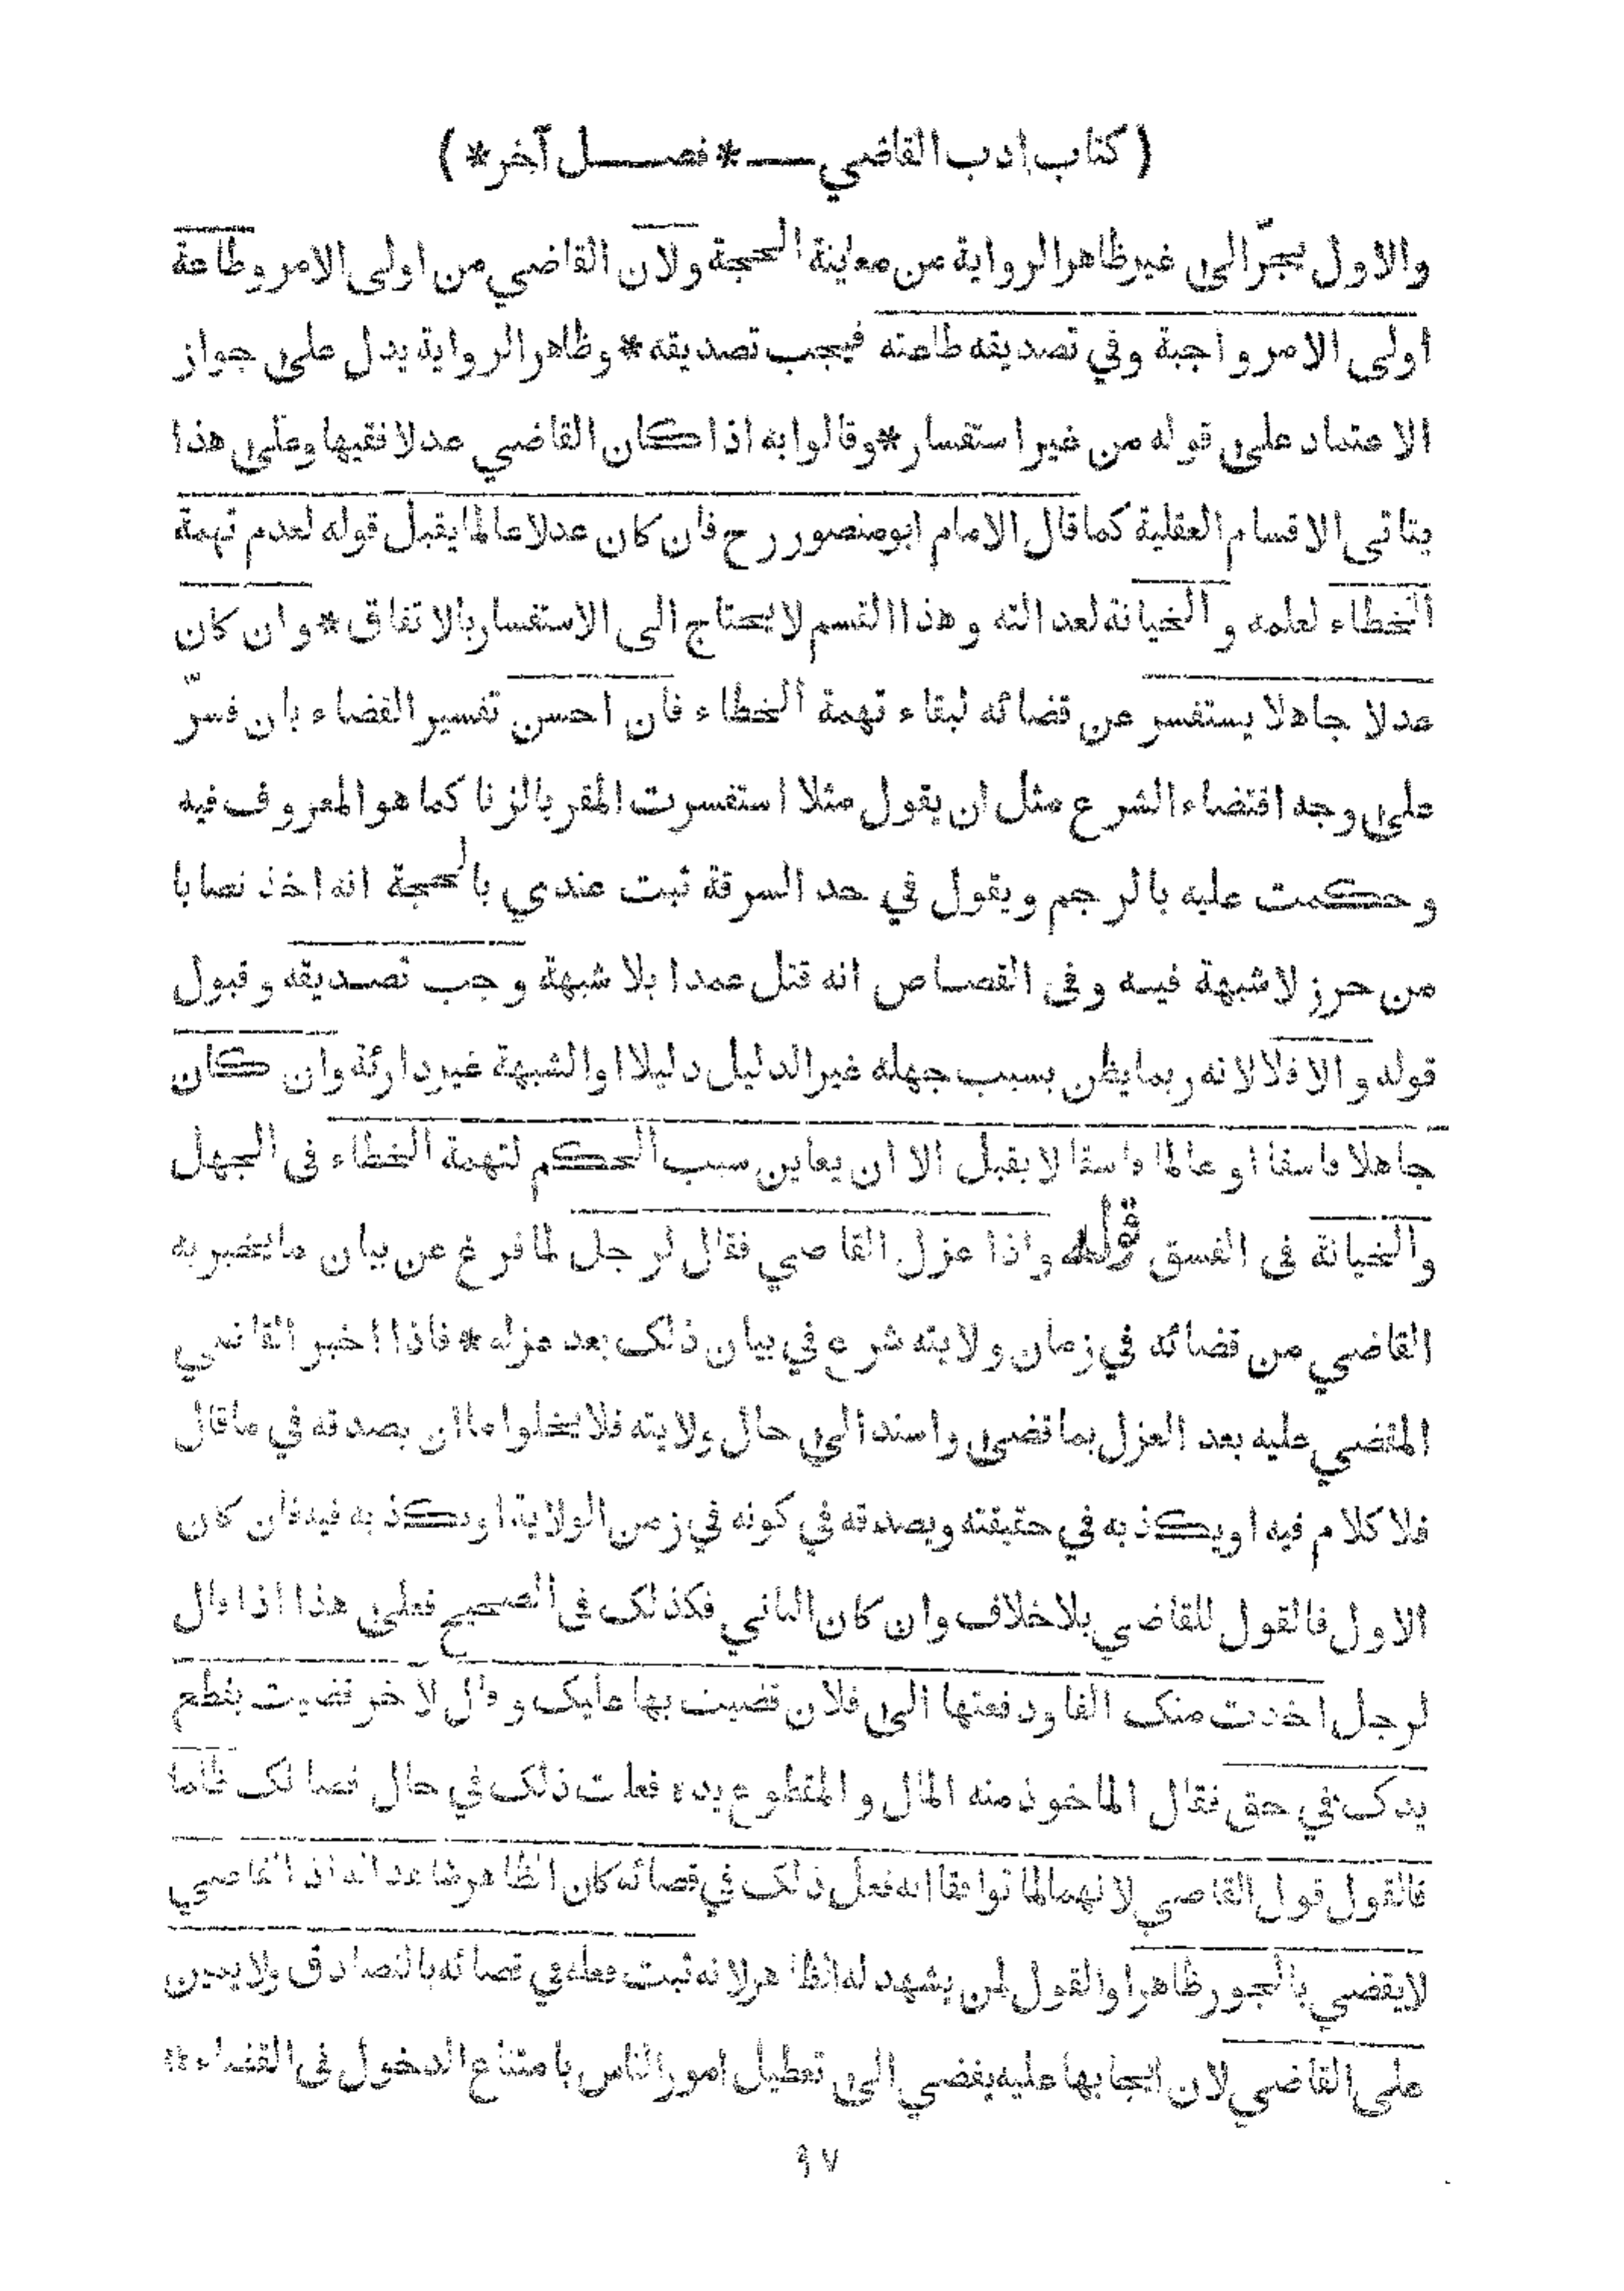 ( كتاب ادب القاضي — * فصل آخر * )
والاول يجرّ الى غير ظاهر الرواية من معاينة الحجة ولان القاضي من اولى الامر وطاعة
اولى الامر واجبة وفي تصديقه طاعته فيجب تصديقه * وظاهر الرواية يدل على جواز
الاعتماد على قوله من غير استفسار * وقالوا به اذا كان القاضي عدلا فقيها وعلى هذا
يتاتى الاقسام العقلية كما قال الامام ابو منصور رح فان كان عدلا عالما يقبل قوله لعدم تهمة
الخطاء لعلمه والخيانة لعدالته وهذا القسم لا يحتاج الى الاستفسار بالاتفاق * وان كان
عدلا جاهلا يستفسر عن قضائه لبقاء تهمة الخطاء فان احسن تفسير القضاء بان فسرّ
على وجه اقتضاء الشرع مثل ان يقول مثلا استفسرت المقر بالزنا كما هو المعروف فيه
وحكمت عليه بالرجم ويقول في حد السرقة ثبت عندي بالحجة انه اخذ نصابا
من حرز لا شبهة فيه وفى القصاص انه قتل عمدا بلا شبهة وجب تصديقه وقبول
قوله والا فلا لانه ربما يظن بسبب جهله غير الدليل دليلا او الشبهة غير دارئة وان كان
جاهلا فاسقا او عالما فاسقا لا يقبل الا ان يعاين سبب الحكم لتهمة الخطاء فى الجهل
والخيانة فى الفسق قوله واذا عزل القاضي فقال لرجل لما فرغ عن بيان ما يخبر به
القاضي من قضائه في زمان ولايته شرع في بيان ذلك بعد عزله * فاذا اخبر القاضي
المقضي عليه بعد العزل بما قضى واسند الى حال ولايته فلا يخلو اما ان يصدقه في ما قال
فلا كلام فيه او يكذبه في حقيقته ويصدقه في كونه في زمن الولاية او يكذبه فيه فان كان
الاول فالقول للقاضي بلا خلاف وان كان الثاني فكذلك فى الصحيح فعلى هذا اذا قال
لرجل اخذت منك الفا ودفعتها الى فلان قضيت بها عليك وقال لاخر قضيت بقطع
يدك في حق فقال الماخوذ منه المال والمقطوع يده فعلت ذلك في حال قضائك ظالما
فالقول قول القاضي لانهما لما توافقا انه فعل ذلك في قضائه كان الظاهر شاهدا له اذ القاضي
لا يقضي بالجور ظاهرا والقول لمن يشهد له الظاهر لانه ثبت فعله في قضائه بالتصادق ولا يمين
على القاضي لان ايجابها عليه يفضي الى تعطيل امور الناس بامتناع الدخول فى القضاء *
٩٧